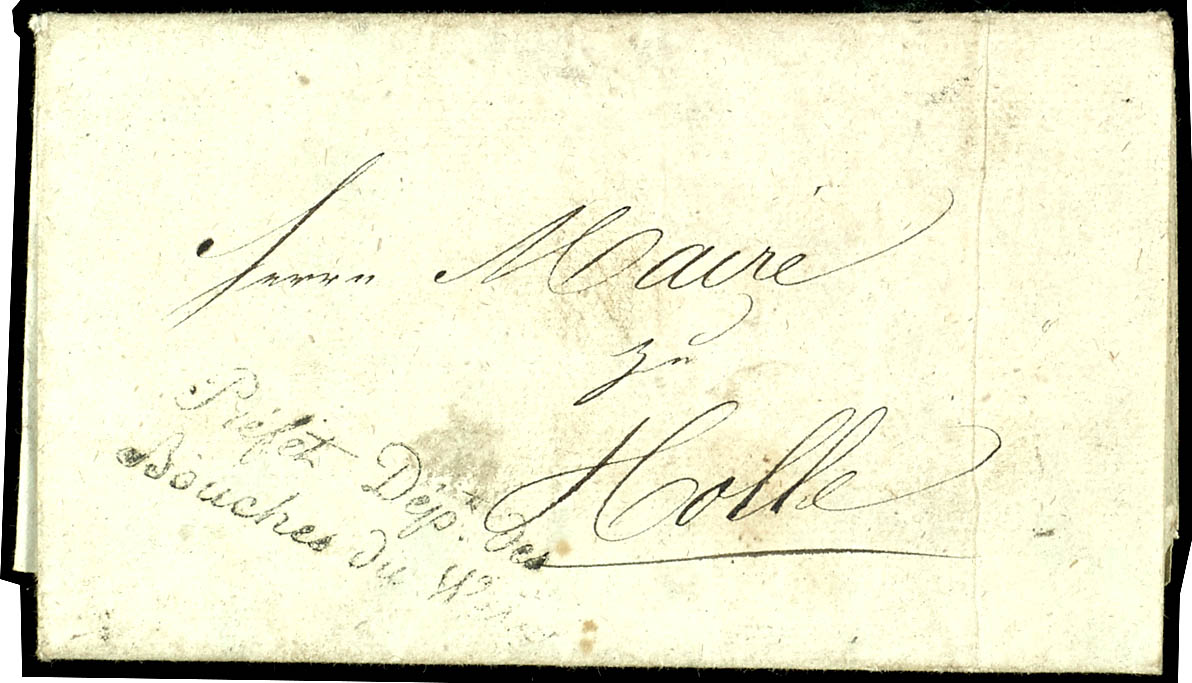 Herrn Maire
zu
Holle
Préfet Dép.t des
Bouches du Weser